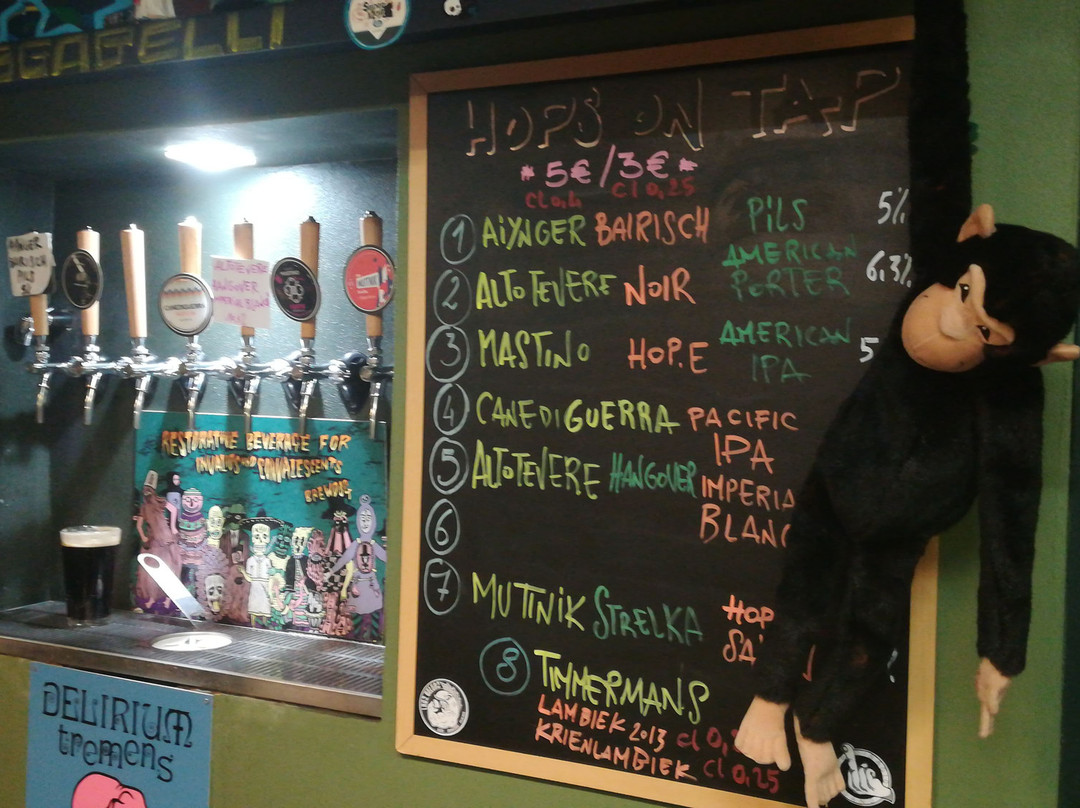 SGAGELLI
HOPS ON TAP
* 5€ / 3€ *
cl 0,4 cl 0,25
1 AIYNGER BAIRISCH PILS 5%
2 ALTOTEVERE NOIR AMERICAN PORTER 6,3%
3 MASTINO HOP.E AMERICAN IPA 5
4 CANE DI GUERRA PACIFIC IPA
5 ALTOTEVERE HANGOVER IMPERIA
BLANC
6
7 MUTTNIK STRELKA HOP
SA
8 TIMMERMANS
LAMBIEK 2013 cl 0,
KRIENLAMBIEK cl 0,25
BAIRISCH
PILS
ALTOTEVERE
HANGOVER
RESTORATIVE BEVERAGE FOR
INVALIDS AND CONVALESCENTS
BREWDOG
DELIRIUM
tremens